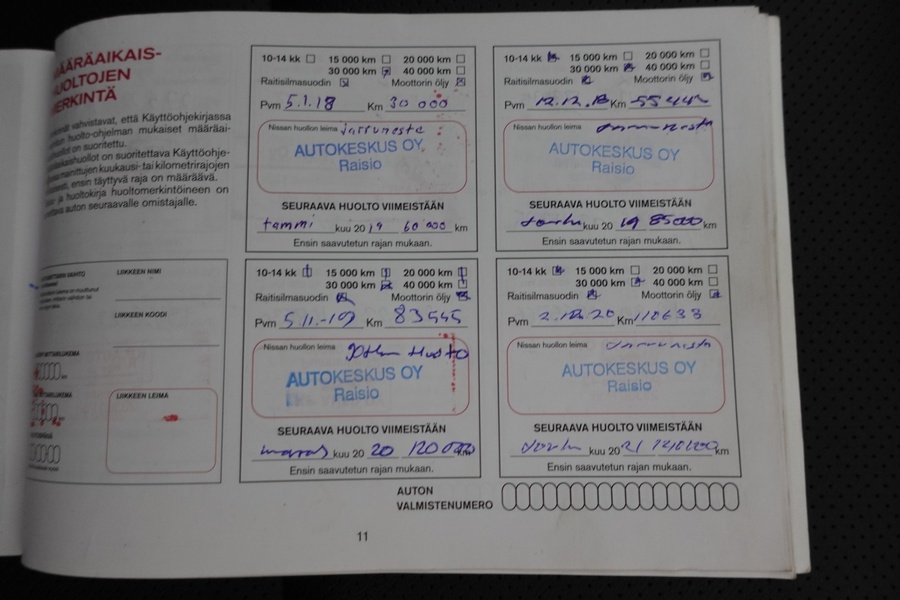 MÄÄRÄAIKAIS-
HUOLTOJEN
MERKINTÄ
vahvistavat, että Käyttöohjekirjassa
huolto-ohjelman mukaiset määräai-
huollot on suoritettu.
on suoritettava Käyttöohje-
mainittujen kuukausi- tai kilometrirajojen
ensin täyttyvä raja on määräävä.
ja huoltokirja huoltomerkintöineen on
auton seuraavalle omistajalle.
LIIKKEEN NIMI
LIIKKEEN KOODI
LIIKKEEN LEIMA
10-14 kk 15 000 km 20 000 km
30 000 km 40 000 km
Raitisilmasuodin Moottorin öljy
Pvm 5.1.18 Km 30 000
Nissan huollon leima
AUTOKESKUS OY
Raisio
SEURAAVA HUOLTO VIIMEISTÄÄN
tammi kuu 2019 60 000 km
Ensin saavutetun rajan mukaan.
10-14 kk 15 000 km 20 000 km
30 000 km 40 000 km
Raitisilmasuodin Moottorin öljy
Pvm 12.12.18 Km
Nissan huollon leima
AUTOKESKUS OY
Raisio
SEURAAVA HUOLTO VIIMEISTÄÄN
kuu 2019 85000 km
Ensin saavutetun rajan mukaan.
10-14 kk 15 000 km 20 000 km
30 000 km 40 000 km
Raitisilmasuodin Moottorin öljy
Pvm 5.11.-19 Km 83545
Nissan huollon leima
AUTOKESKUS OY
Raisio
SEURAAVA HUOLTO VIIMEISTÄÄN
kuu 2020 120000 km
Ensin saavutetun rajan mukaan.
10-14 kk 15 000 km 20 000 km
30 000 km 40 000 km
Raitisilmasuodin Moottorin öljy
Pvm 2.12.20 Km 110633
Nissan huollon leima
AUTOKESKUS OY
Raisio
SEURAAVA HUOLTO VIIMEISTÄÄN
kuu 2021 140000 km
Ensin saavutetun rajan mukaan.
AUTON
VALMISTENUMERO
11